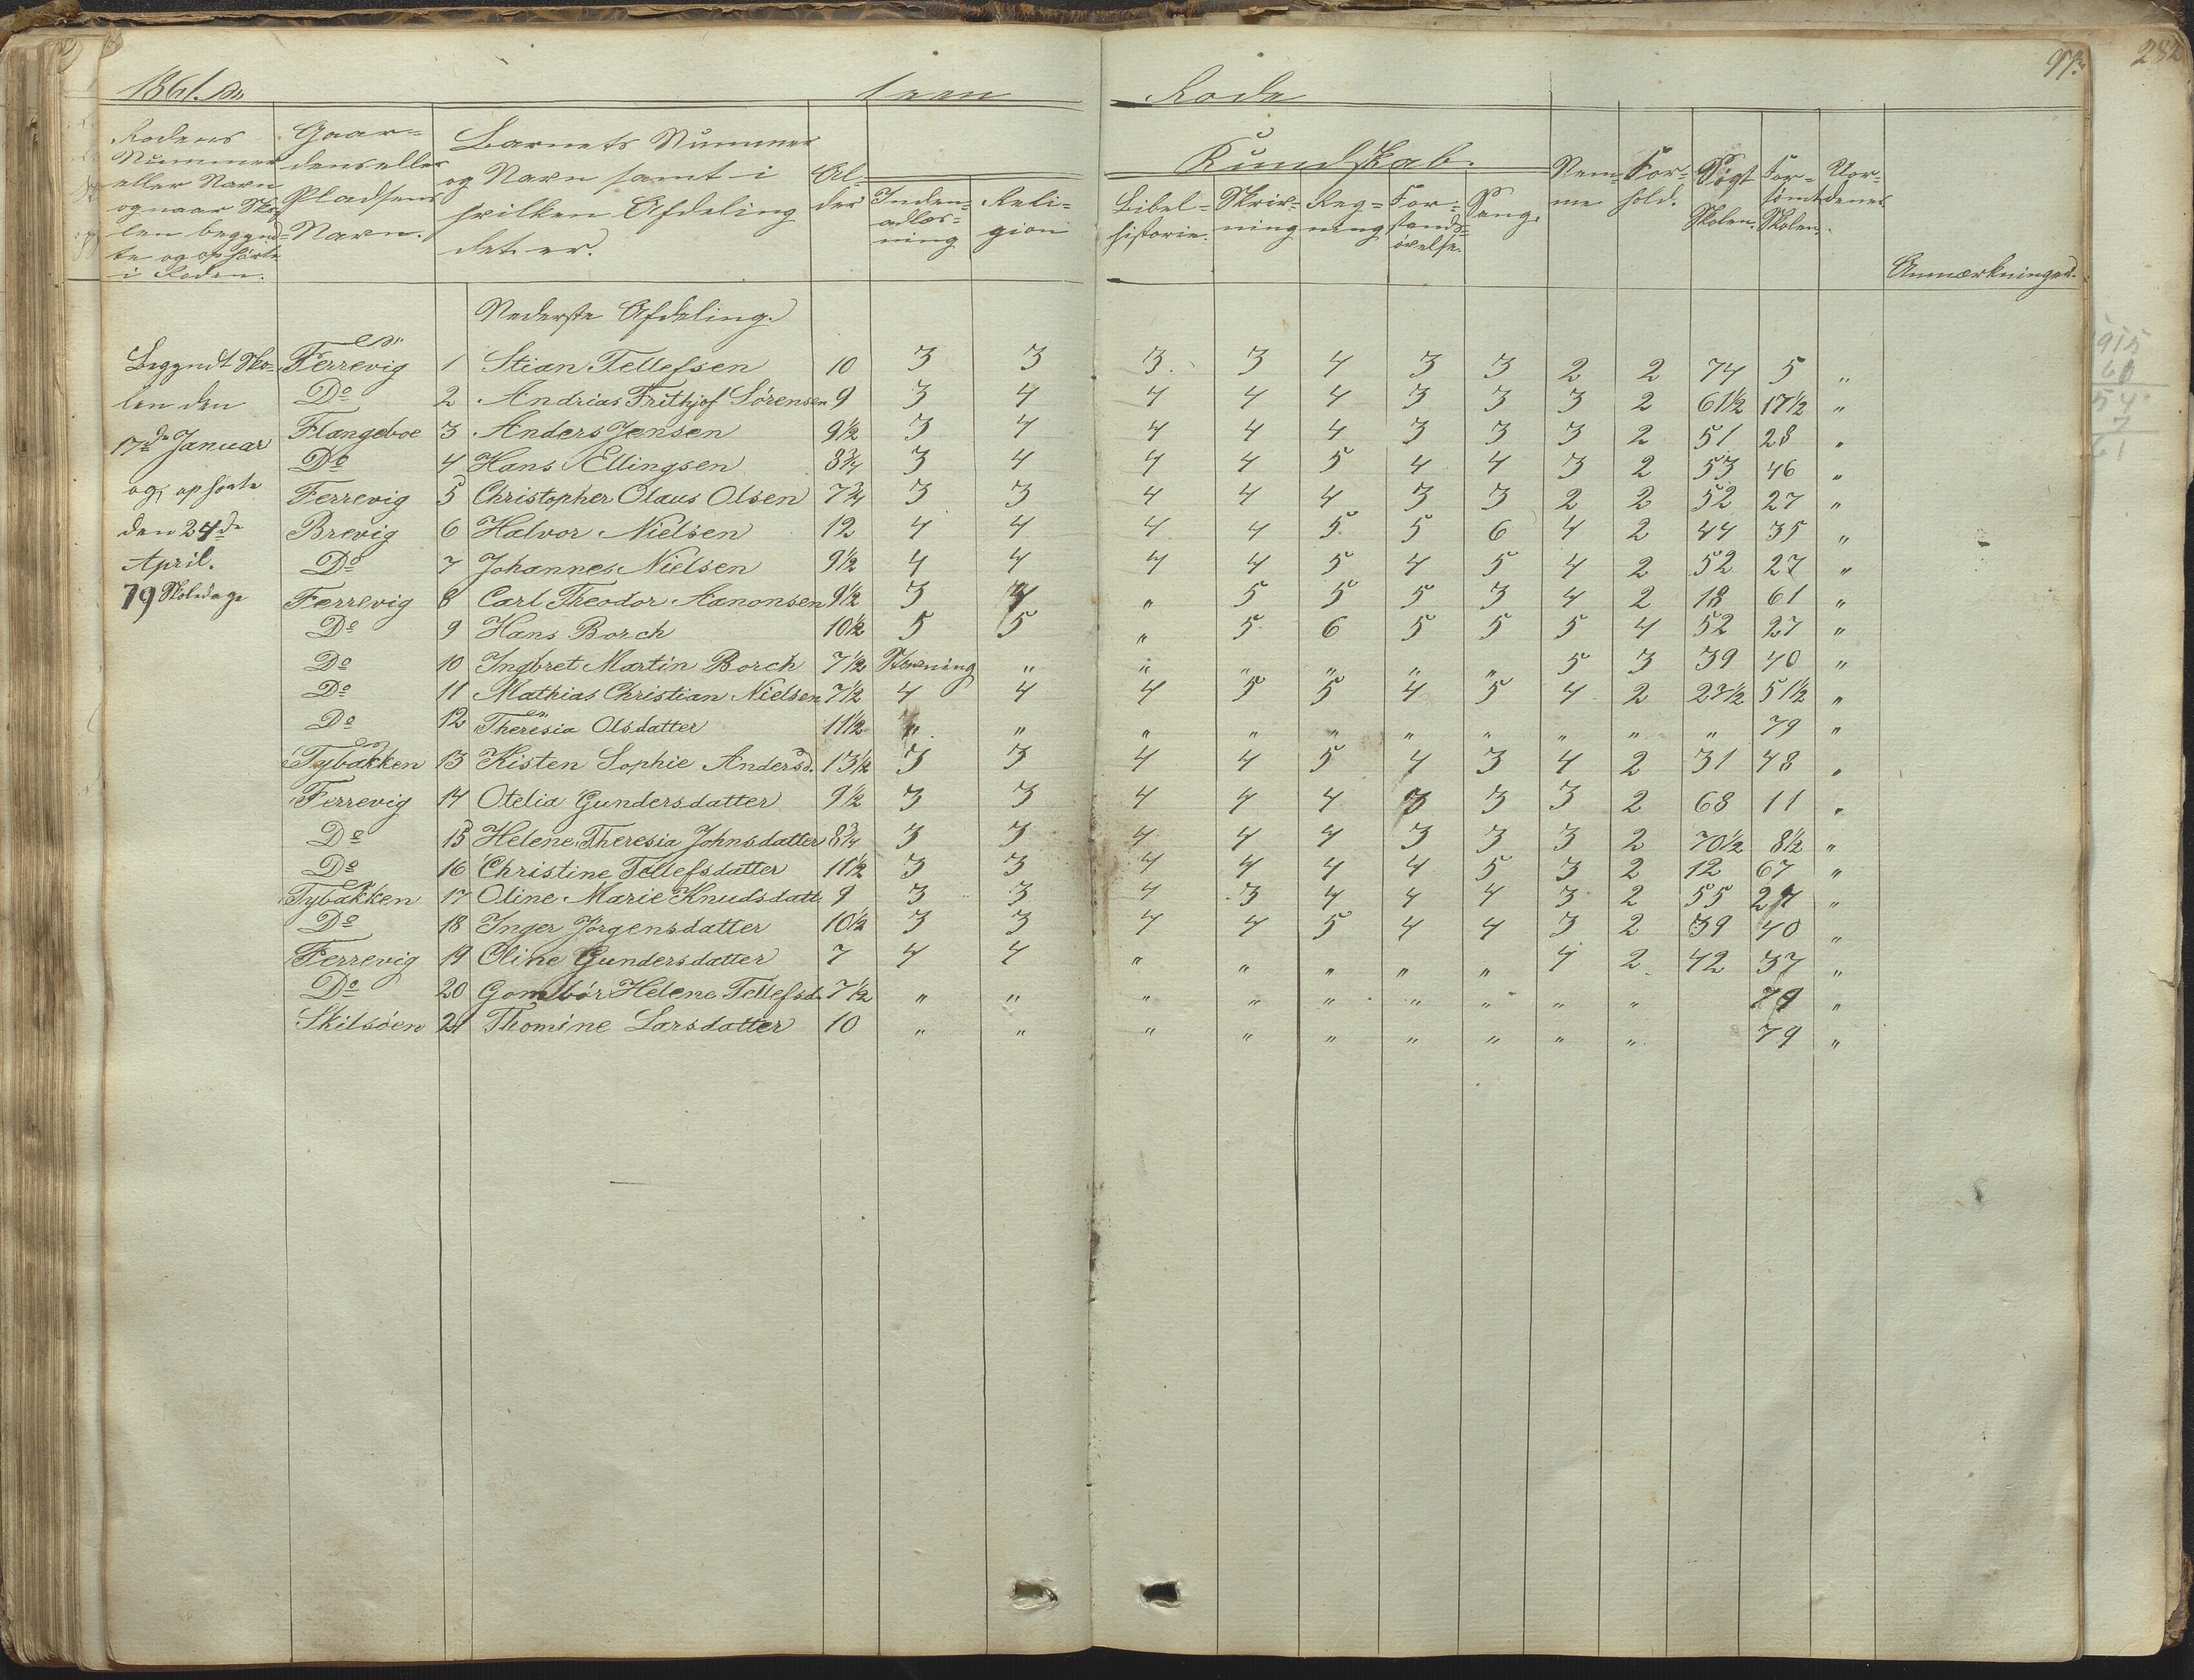 1861.
1een Rode
97.
232
Rodens Nummer eller Navn og naar Skolen begyndte og ophørte i Roden.
Gaardens eller Pladsens Navn.
Barnets Nummer og Navn samt i hvilken Afdeling det er.
Alder
Kundskab.
Indenadlæsning
Religion
Bibelhistorie.
Skrivning
Regning
Forstandsøvelse.
Sang.
Nemme
Forhold.
Søgt Skolen.
Forsømt Skolen.
Anmærkninger.
Nederste Afdeling.
Begyndt Sko-
len den
17de Januar
og ophørte
den 24de
April.
79 Skoledage
Færrevig 1 Stian Tellefsen 10 3 3 3 3 4 3 3 2 2 74 5 "
Do 2 Andrias Frithjof Sørensen 9 3 4 4 4 4 3 3 3 2 61½ 17½ "
Flangeboe 3 Anders Jensen 9½ 3 4 4 4 4 3 3 3 2 51 28 "
Do 4 Hans Ellingsen 8¾ 3 4 4 4 5 4 4 3 2 53 46 "
Ferrevig 5 Christopher Olaus Olsen 7¾ 3 3 4 4 4 3 3 2 2 52 27 "
Brevig 6 Halvor Nielsen 12 4 4 4 4 5 5 6 4 2 44 35 "
Do 7 Johannes Nielsen 9½ 4 4 4 4 5 4 5 4 2 52 27 "
Ferrevig 8 Carl Theodor Aanonsen 9½ 3 4 " 5 5 5 3 4 2 18 61 "
Do 9 Hans Borch 10½ 5 5 " 5 6 5 5 5 4 52 27 "
Do 10 Ingbret Martin Borch 7½ Stavning " " " " " " 5 3 39 40 "
Do 11 Mathias Christian Nielsen 7½ 4 4 4 5 5 4 5 4 2 27½ 51½ "
Do 12 Theresia Olsdatter 11½ " " " " " " " " " " 79 "
Tybakken 13 Kisten Sophie Andersd. 13½ 3 3 4 4 5 4 3 4 2 31 48 "
Ferrevig 14 Otelia Gundersdatter 9½ 3 3 4 4 4 3 3 3 2 68 11 "
Do 15 Helene Theresia Johnsdatter 8¾ 3 3 4 4 4 3 3 3 2 70½ 8½ "
Do 16 Christine Tellefsdatter 11½ 3 3 4 4 4 4 5 3 2 12 67 "
Tybakken 17 Oline Marie Knudsdatt. 9 3 3 4 3 4 4 4 3 2 55 24 "
Do 18 Inger Jörgensdatter 10½ 3 3 4 4 5 4 4 3 2 39 40 "
Ferrevig 19 Oline Gundersdatter 7 4 4 " " " " " 4 2 42 37 "
Do 20 Gombór Helene Tellefsd. 7½ " " " " " " " " " 79 "
Skilsöen 21 Thomine Larsdatter 10 " " " " " " " " " 79 "